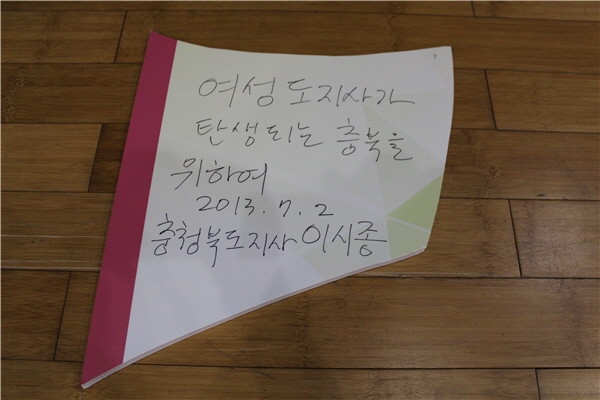 여성 도지사가
탄생되는 충북을
위하여
2013. 7. 2
충청북도지사 이시종